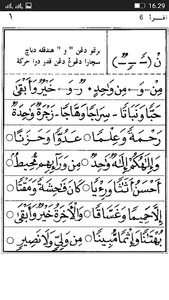 16.29
1 اقرأ 6
نْ (ـًـ ـٍـ ـٌـ)
برتمو دڠن " و " هندقله دباچ
سچارا دڠوڠ دڠن قدر دوا حركة
مِنْ - وَ - مِنْ وَاحِدٍ * رٌ - وَ - خَيْرٌ وَأَبْقَى
حَبًّا وَنَبَاتًا - سِرَاجًا وَهَّاجًا - زَجْرَةٌ وَحِدَةٌ
رَحْمَةً وَعِلْمًا ○ عَدُوًّا وَحَزَنًا ○
وَإِلَهُكُمْ إِلَهٌ وَحِدٌ ○ مِنْ وَرَائِهِمْ مُحِيطٌ ○
أَحْسَنُ أَثَاثًا وَرِءْيًا ○ كَانَ فَاحِشَةً وَمَقْتًا
إِلَّا حَمِيمًا وَغَسَّاقًا ○ وَالْآخِرَةُ خَيْرٌ وَأَبْقَى
بُهْتَنًا وَإِثْمًا مُبِينًا ○ مِنْ وَلِيٍّ وَلَا نَصِيرٍ